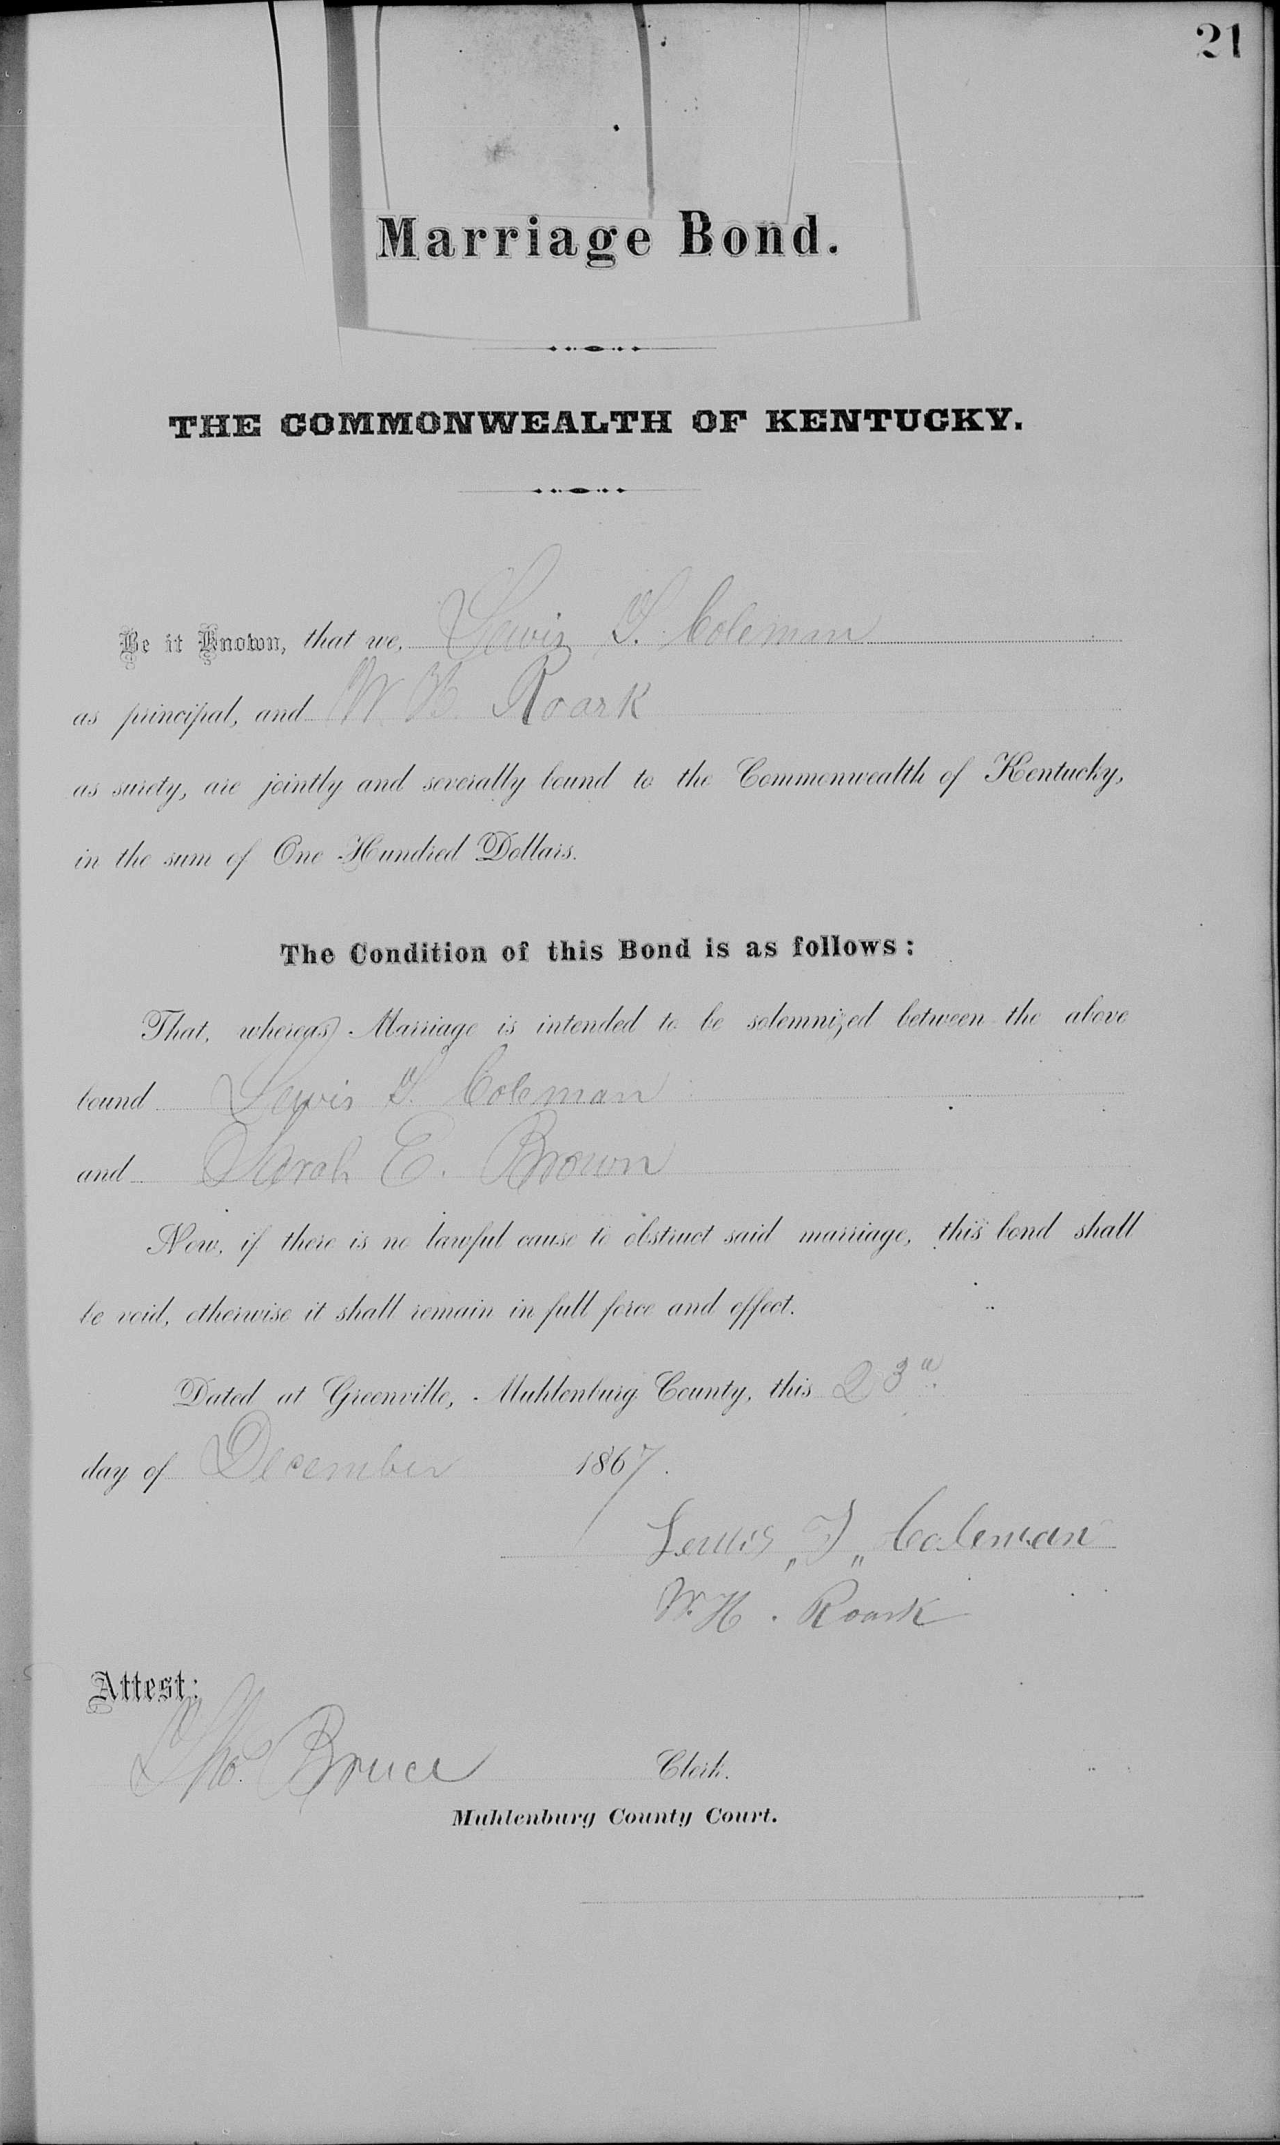 21
Marriage Bond.
THE COMMONWEALTH OF KENTUCKY.
Be it Known, that we, Lewis T. Coleman
as principal, and W. H. Roark
as surety, are jointly and severally bound to the Commonwealth of Kentucky,
in the sum of One Hundred Dollars.
The Condition of this Bond is as follows:
That, whereas, Marriage is intended to be solemnized between the above
bound Lewis T. Coleman
and Sarah E. Brown
Now, if there is no lawful cause to obstruct said marriage, this bond shall
be void, otherwise it shall remain in full force and effect.
Dated at Greenville, Muhlenburg County, this 23d
day of December 1867.
Lewis „T„ Coleman
W. H. Roark
Attest:
Tho. Bruce Clerk.
Muhlenburg County Court.